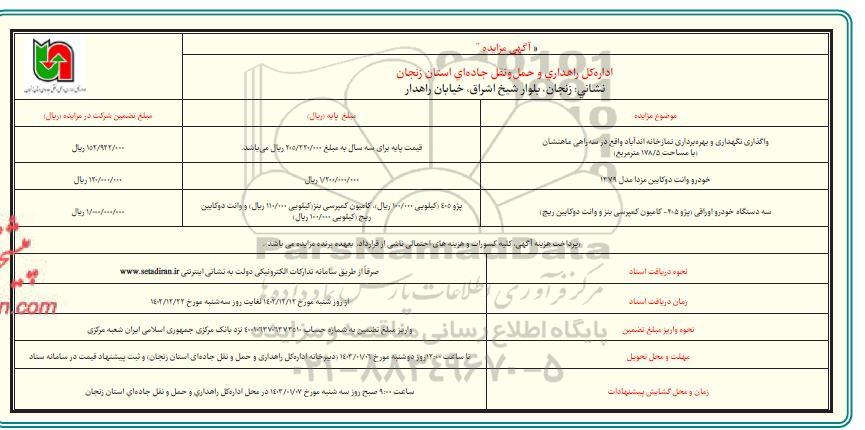 « آگهی مزایده "
اداره‌کل راهداري و حمل‌ونقل جاده‌اي استان زنجان
نشاني: زنجان، بلوار شیخ اشراق، خیابان راهدار
موضوع مزایده
مبلغ پایه (ریال)
مبلغ تضمین شرکت در مزایده (ریال)
واگذاری نگهداری و بهره‌برداری نمازخانه اندآباد واقع در سه‌راهی ماهنشان
(با مساحت ۱۷۸/۵ مترمربع)
قیمت پایه برای سه سال به مبلغ ۲۰۵/۲۲۰/۰۰۰ ریال می‌باشد.
۱۵۲/۹۲۲/۰۰۰ ریال
خودرو وانت دوکابین مزدا مدل ۱۳۷۹
۱/۲۰۰/۰۰۰/۰۰۰ ریال
۱۲۰/۰۰۰/۰۰۰ ریال
سه دستگاه خودرو اوراقی (پژو ۴۰۵- کامیون کمپرسی بنز و وانت دوکابین ریچ)
پژو ٤٠٥ (کیلویی ۱۰۰/۰۰۰ ریال)، کامیون کمپرسی بنز(کیلویی ۱۱۰/۰۰۰ ریال) و وانت دوکابین
ریچ (کیلویی ۱۰۰/۰۰۰ ریال)
۱/۰۰۰/۰۰۰/۰۰۰ ریال
(پرداخت هزینه آگهی، کلیه کسورات و هزینه های احتمالی ناشی از قرارداد، بعهده برنده مزایده می باشد).
نحوه دریافت اسناد
صرفاً از طریق سامانه تدارکات الکترونیکی دولت به نشانی اینترنتی www.setadiran.ir
زمان دریافت اسناد
از روز شنبه مورخ ۱۴۰۲/۱۲/۱۲ لغایت روز سه‌شنبه مورخ ۱۴۰۲/۱۲/۲۲
نحوه واریز مبلغ تضمین
واریز مبلغ تضمین به شماره حساب ۴۰۰۱۰۶۳۷۰۶۳۷۳۵۱۰ نزد بانک مرکزی جمهوری اسلامی ایران شعبه مرکزی
مهلت و محل تحویل
تا ساعت ۱۲:۰۰ روز دوشنبه مورخ ۱۴۰۳/۰۱/۰۶ (دبیرخانه اداره‌کل راهداری و حمل و نقل جاده‌ای استان زنجان) و ثبت پیشنهاد قیمت در سامانه ستاد
زمان و محل گشایش پیشنهادات
ساعت ۹:۰۰ صبح روز سه شنبه مورخ ۱۴۰۳/۰۱/۰۷ در محل اداره‌کل راهداري و حمل و نقل جاده‌اي استان زنجان
ParsNamadData
مرکز فرآوری اطلاعات پارس نماد داده ها
پایگاه اطلاع رسانی مناقصه و مزایده
۰۲۱-۸۸۳۴۹۶۷۰-۵